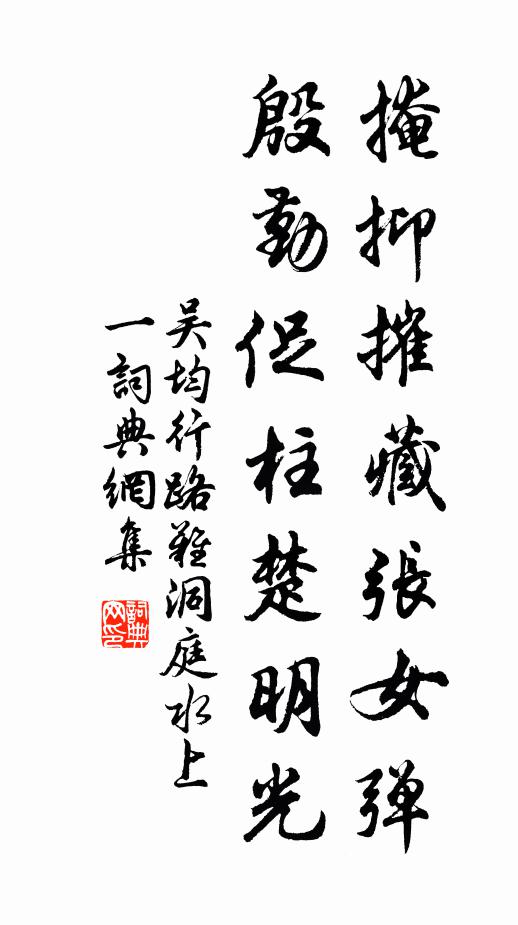 掩抑摧藏張女彈
殷勤促柱楚明光
吴均行路難洞庭水上
一詞典網集
詞典网印